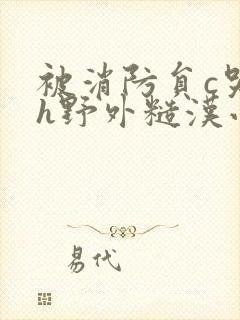 被消防负c哭
h野外糙漢
易代